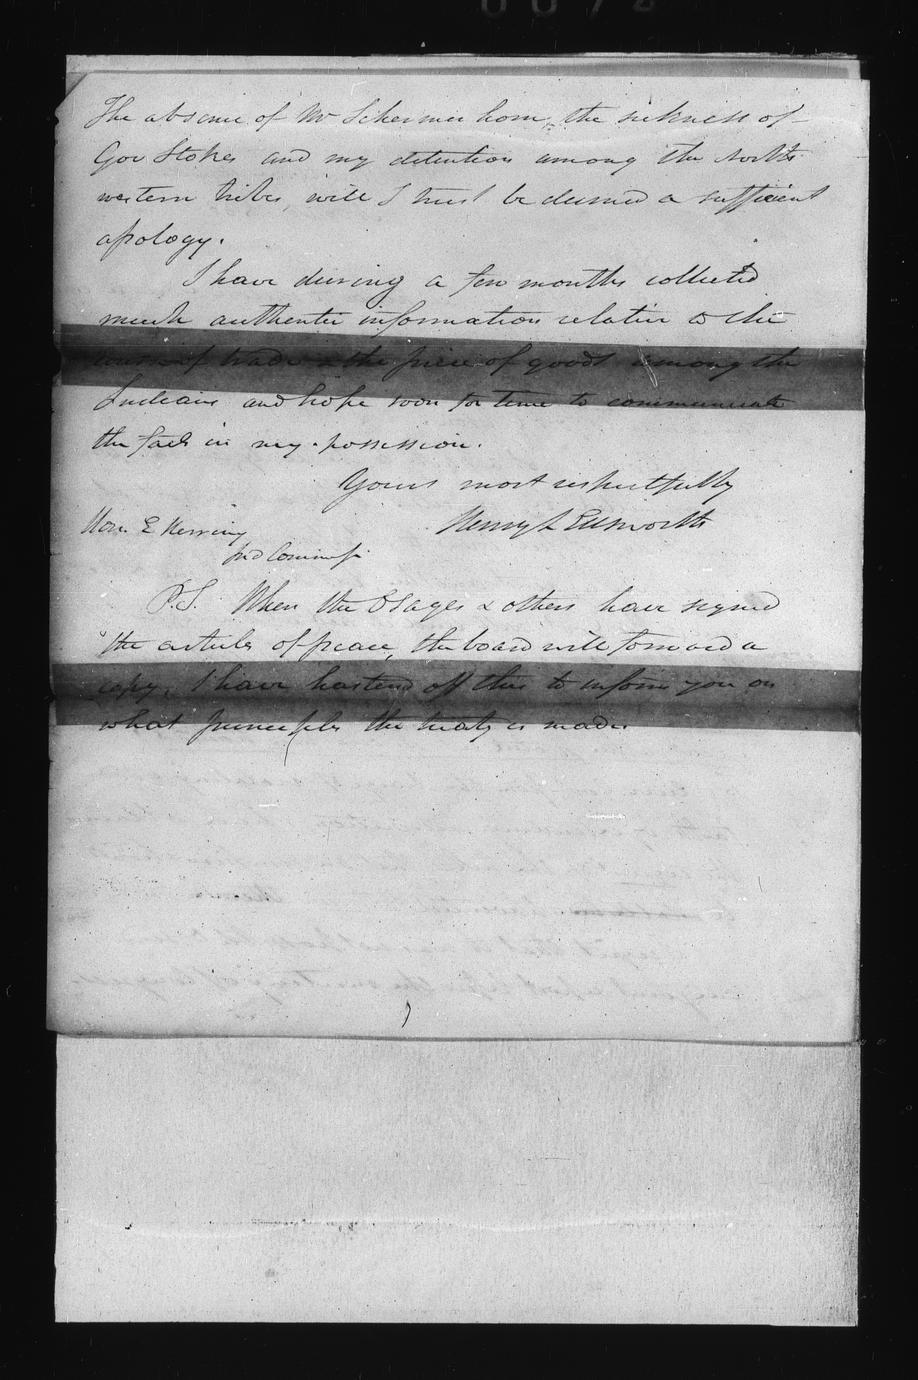 The absence of Mr Schermerhorn, the sickness of
Gov Stokes and my detention among the North
western tribes, will I trust be deemed a sufficient
apology.
I have during a few months collected
much authentic information relative to the
of trade & the price of goods among the
Indians and hope soon for time to communicate
the facts in my possession.
Yours most respectfully
Henry L Ellsworth
Hon. E Herring
Ind Commisr
P.S. When the Osages & others have signed
the articles of peace, the board will forward a
copy, I have hastend off this to inform you on
what principles the treaty is made.